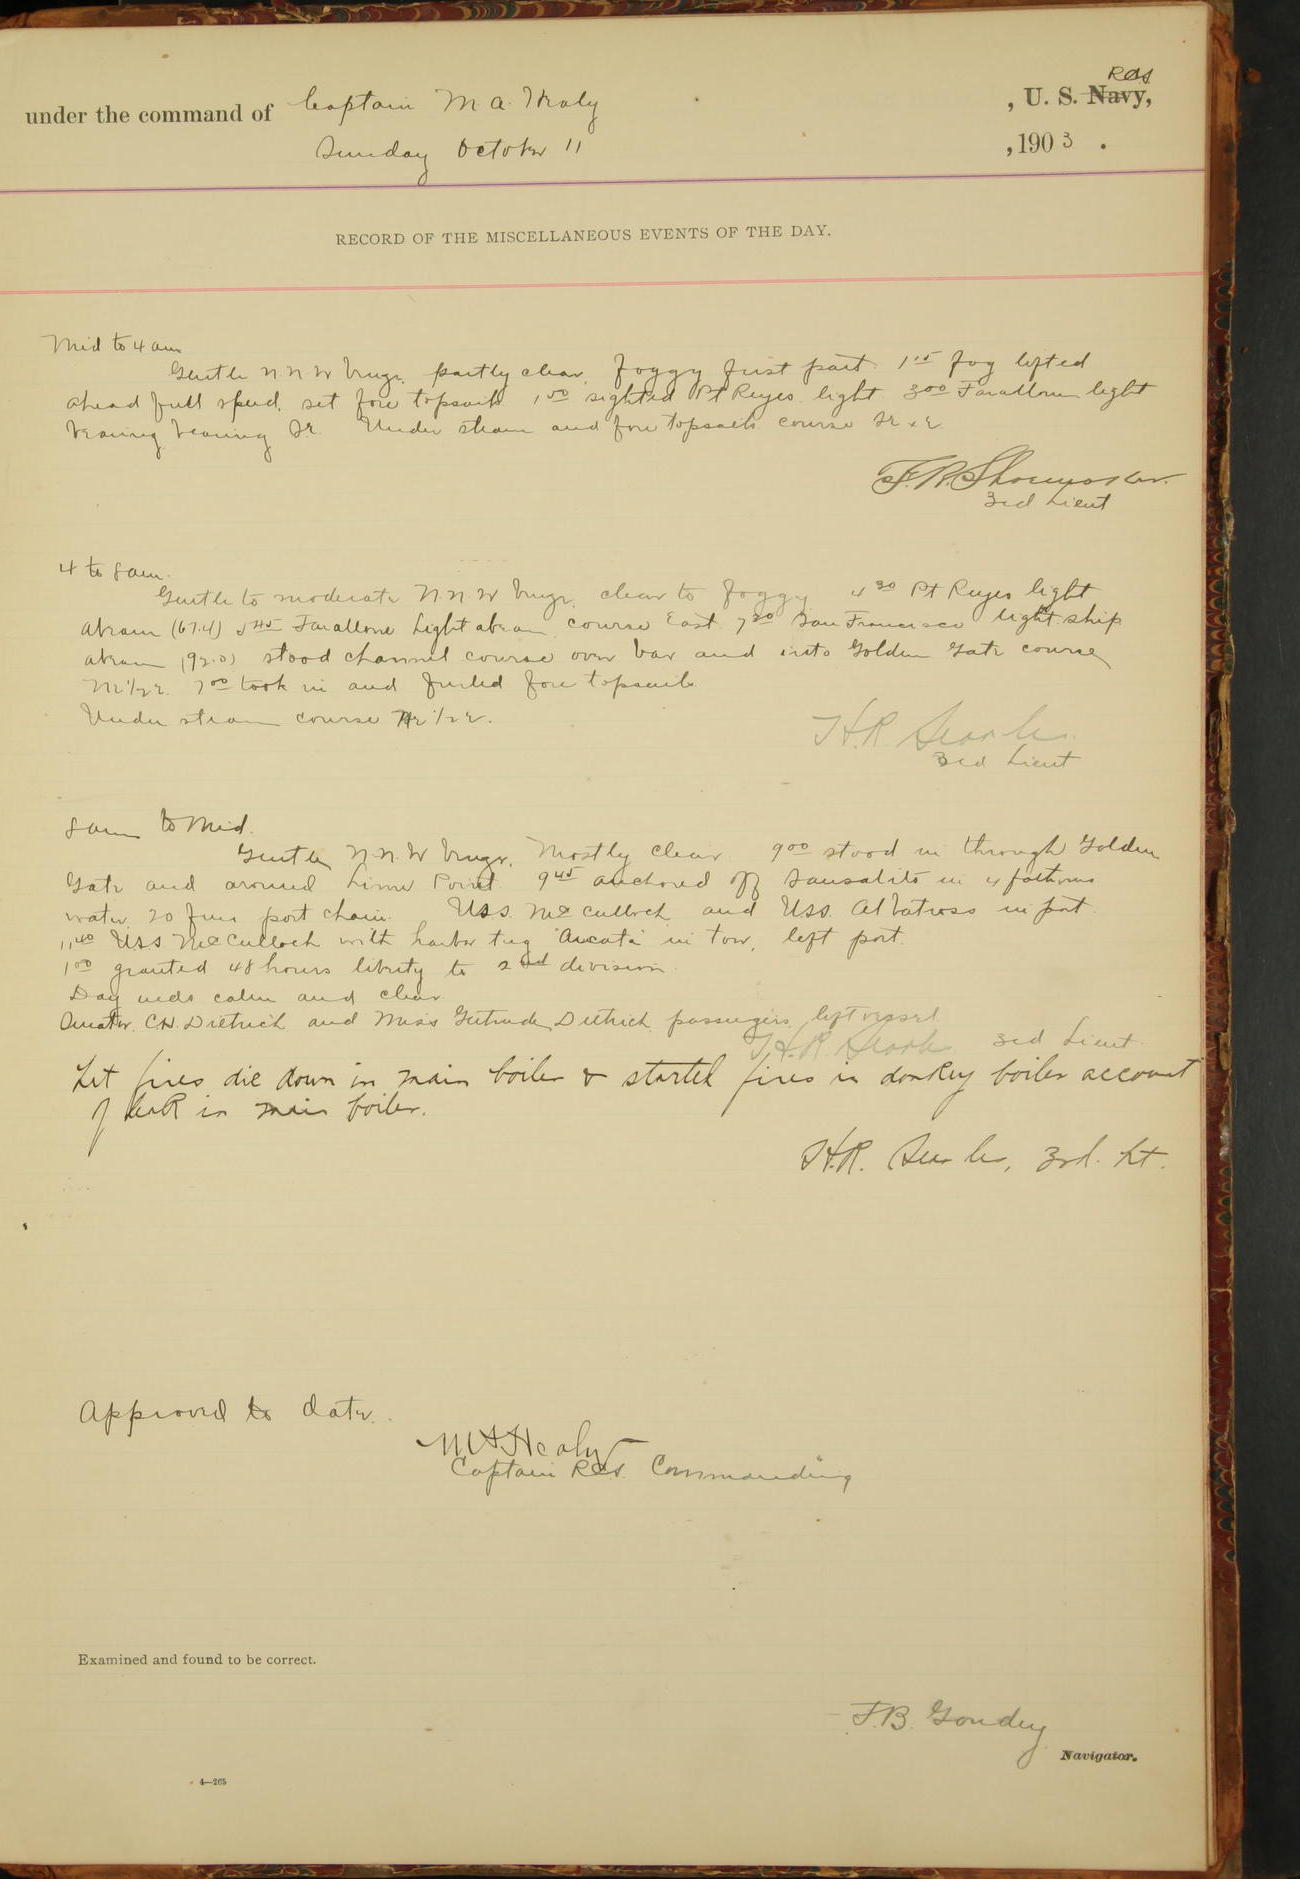 RCS
under the command of Captain M. A. Healy , U. S. Navy,
Sunday October 11 , 190 3 .
RECORD OF THE MISCELLANEOUS EVENTS OF THE DAY.
Mid to 4 am
Gentle N N W breeze, partly clear, foggy first part. 1 15 fog lifted
ahead full speed, set fore topsails 1 50 sighted Pt Reyes light 3 00 Farallone light
bearing bearing Under steam and fore topsails course
3rd Lieut
4 to 8 am.
Gentle to moderate N N W breeze, clear to foggy 4 30 Pt Reyes light
abeam (67.4) 5 45 Farallone Light abeam course East. 7 20 San Francisco light ship
abeam (92.0) stood channel course over bar and into Golden Gate course
NE 1/2 E. 7 00 took in and furled fore topsails
Under steam course NE 1/2 E.
H. R. Searles.
3rd Lieut
8 am to Mid.
Gentle N.N.W breeze, Mostly clear 9 00 stood in through Golden
Gate and around Lime Point 9 45 anchored off Sausalito in 4 fathoms
water, 20 fms port chain. USS. McCulloch and USS. Albatross in port.
11 40 USS McCulloch with harbor tug "Arcata" in tow, left port.
1 00 granted 48 hours liberty to 2nd division.
Day ends calm and clear
Senator C.H. Dietrich and Miss Gertrude Dietrich passengers, left vessel
H. R. Searles 3rd Lieut.
Let fires die down in main boiler & started fires in donkey boiler account
of leak in main boiler.
H. R. Searles, 3rd. Lt.
Approved to date.
M A Healy
Captain RCS. Commanding
Examined and found to be correct.
F. B. Goudey
Navigator.
4—265